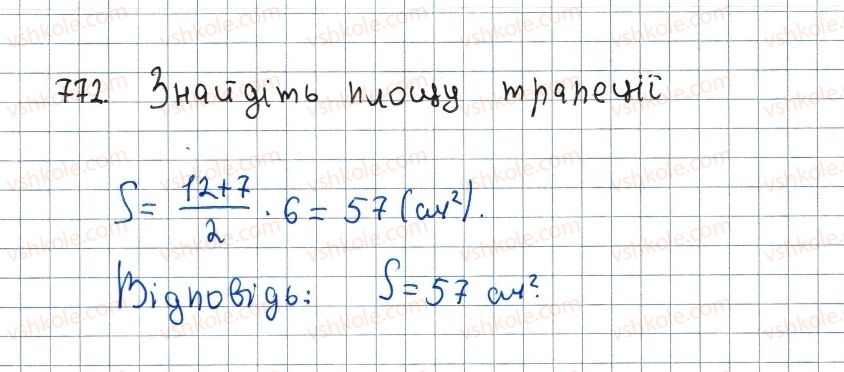 772. Знайдіть площу трапеції
S = \frac{12+7}{2} · 6 = 57 (см²).
Відповідь: S = 57 см².